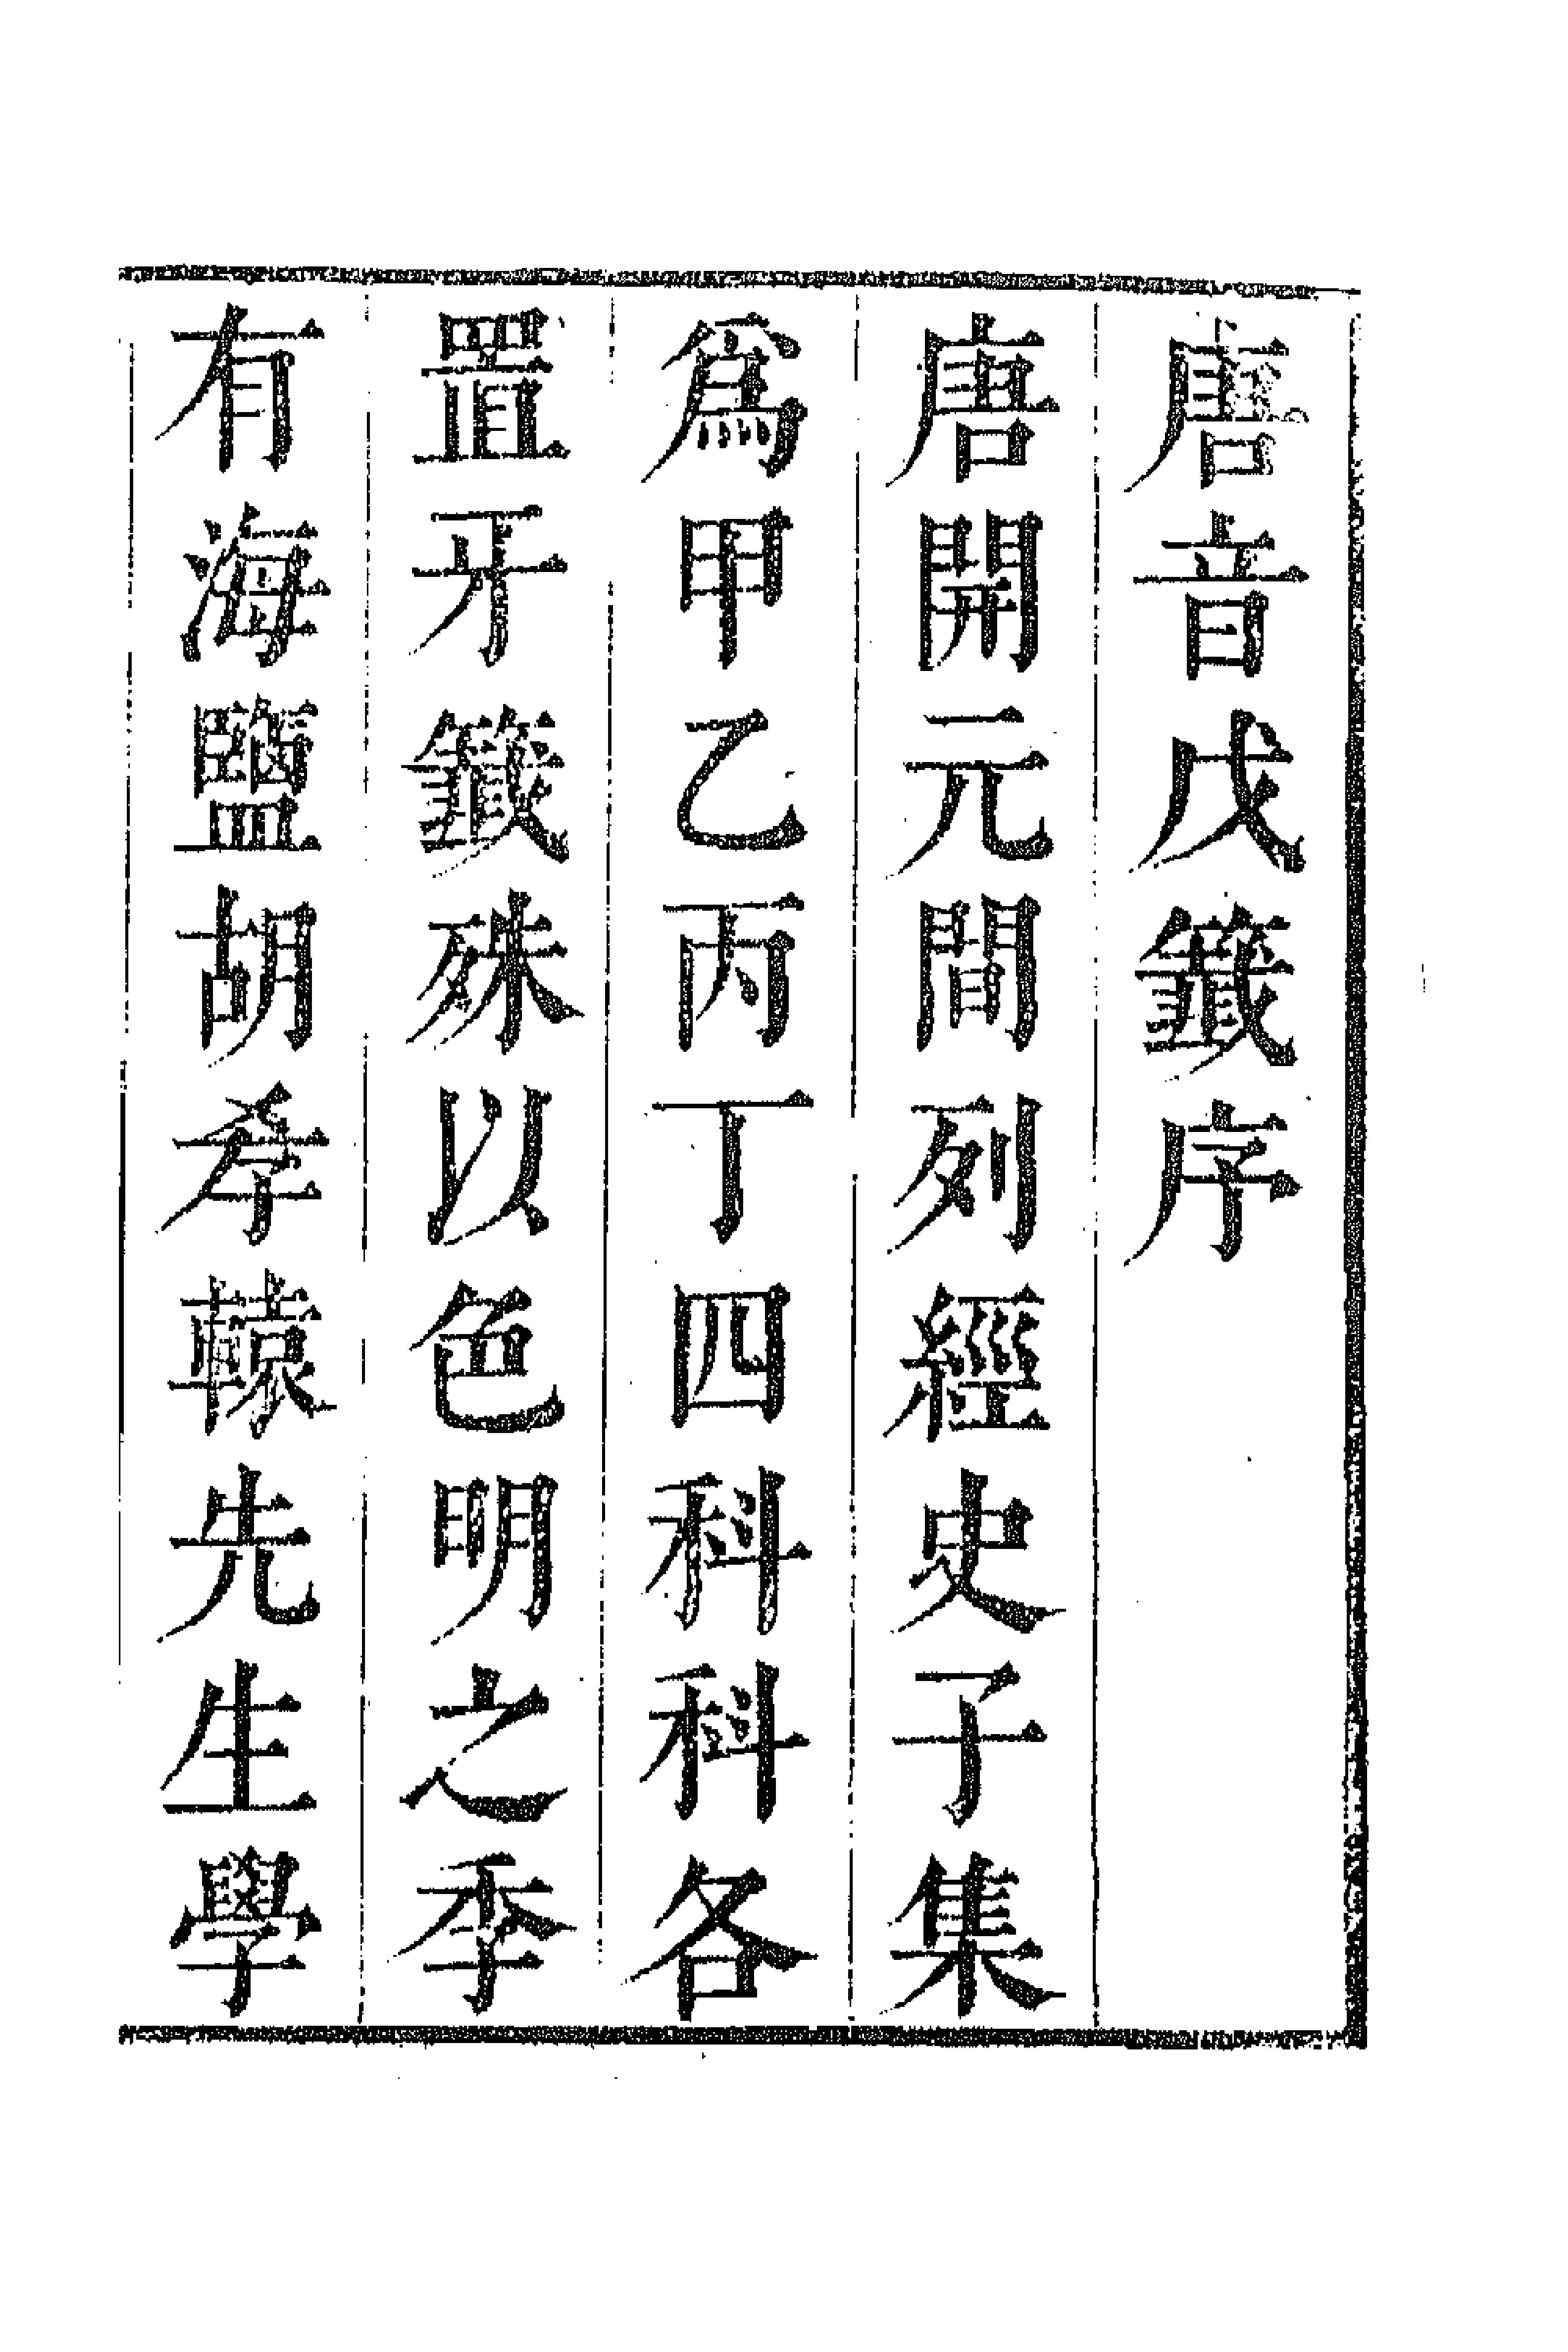 唐音戊籤序
唐開元間列經史子集
爲甲乙丙丁四科科各
置牙籤殊以色明之季
有海鹽胡孝轅先生學